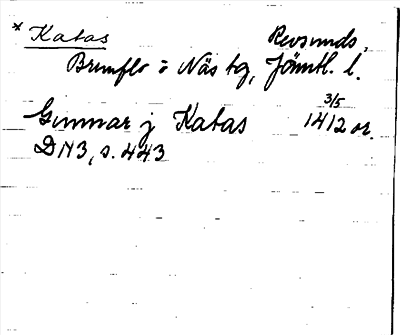 * Katas Revsunds,
Brunflo o Näs tg, Jämtl. l.
Gunnar j Katas 3/5 1412 or.
DN3, s. 443